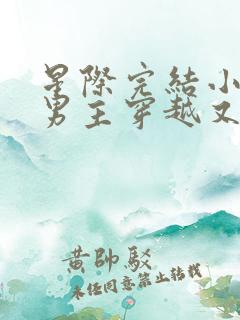 星際完結小
男主穿越又
黄帥駁
未经同意禁止转载